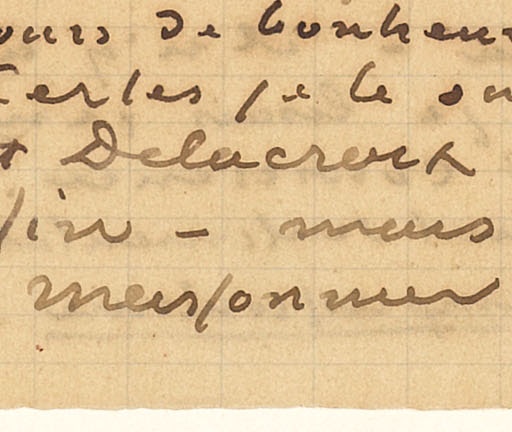 ours de bonheur
certes je le su
t Delacroix
fin – mais
meissonnier